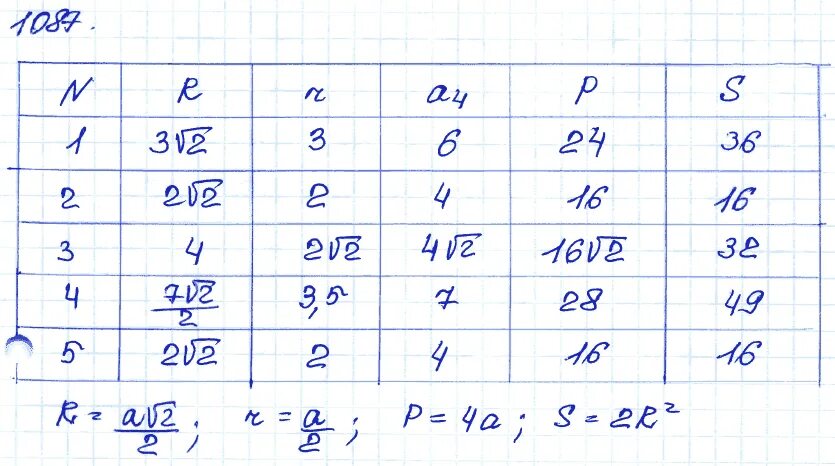 1087.
N R r a₄ P S
1 3√2 3 6 24 36
2 2√2 2 4 16 16
3 4 2√2 4√2 16√2 32
4 7√2/2 3,5 7 28 49
5 2√2 2 4 16 16
R = a√2/2 ; r = a/2 ; P = 4a ; S = 2R²